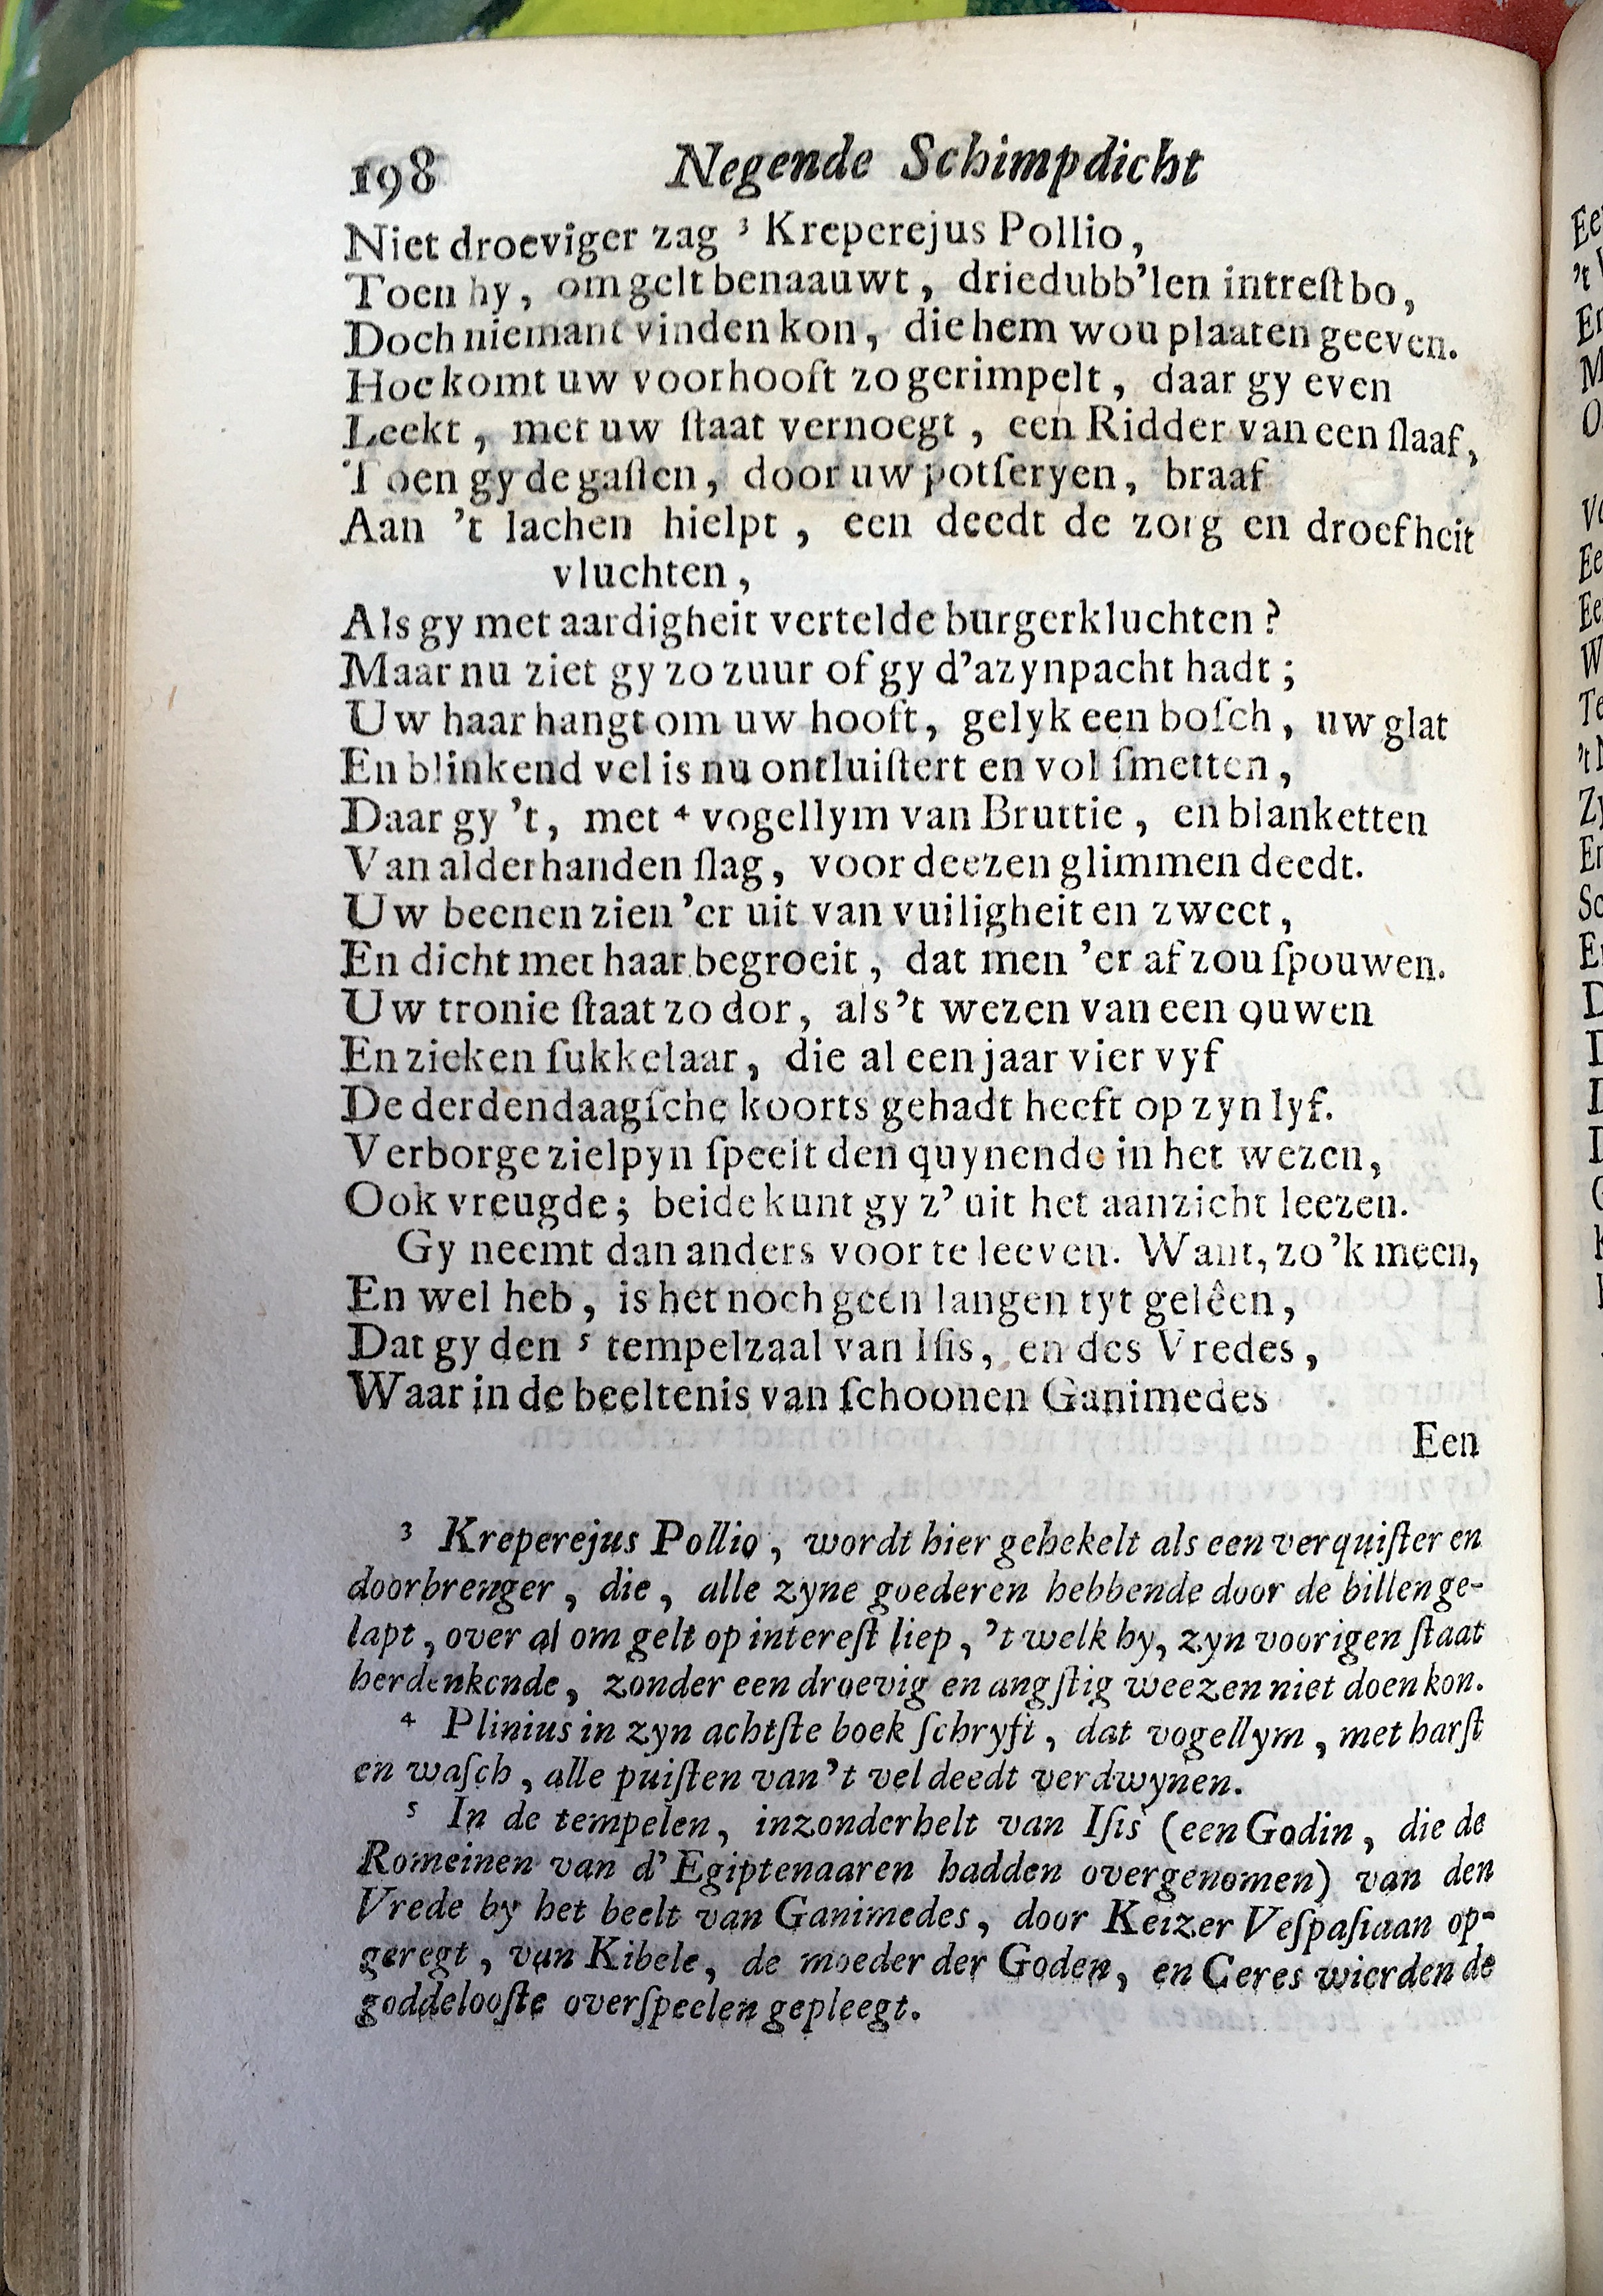 198 Negende Schimpdicht
Niet droeviger zag ³ Kreperejus Pollio,
Toen hy, om gelt benaauwt, driedubb'len intreſt bo,
Doch niemant vinden kon, die hem wou plaaten geeven.
Hoe komt uw voorhooft zo gerimpelt, daar gy even
Leekt, met uw ſtaat vernoegt, een Ridder van een ſlaaf,
Toen gy de gaſten, door uw potſeryen, braaf
Aan 't lachen hielpt, een deedt de zorg en droefheit
vluchten,
Als gy met aardigheit vertelde burgerkluchten?
Maar nu ziet gy zo zuur of gy d'azynpacht hadt;
Uw haar hangt om uw hooft, gelyk een boſch, uw glat
En blinkend vel is nu ontluiſtert en vol ſmetten,
Daar gy 't, met ⁴ vogellym van Bruttie, en blanketten
Van alderhanden ſlag, voor deezen glimmen deedt.
Uw beenen zien 'er uit van vuiligheit en zweet,
En dicht met haar begroeit, dat men 'er af zou ſpouwen.
Uw tronie ſtaat zo dor, als 't wezen van een ouwen
En zieken ſukkelaar, die al een jaar vier vyf
De derdendaagſche koorts gehadt heeft op zyn lyf.
Verborge zielpyn ſpeelt den quynende in het wezen,
Ook vreugde; beide kunt gy z' uit het aanzicht leezen.
Gy neemt dan anders voor te leeven. Want, zo 'k meen,
En wel heb, is het noch geen langen tyt gelêen,
Dat gy den ⁵ tempelzaal van Iſis, en des Vredes,
Waar in de beeltenis van ſchoonen Ganimedes
Een
³ Kreperejus Pollio, wordt hier gehekelt als een verquiſter en
doorbrenger, die, alle zyne goederen hebbende door de billen ge-
lapt, over al om gelt op intereſt liep, 't welk hy, zyn voorigen ſtaat
herdenkende, zonder een droevig en angſtig weezen niet doen kon.
⁴ Plinius in zyn achtſte boek ſchryft, dat vogellym, met harſt
en waſch, alle puiſten van 't vel deedt verdwynen.
⁵ In de tempelen, inzonderheit van Iſis (een Godin, die de
Romeinen van d'Egiptenaaren hadden overgenomen) van den
Vrede by het beelt van Ganimedes, door Keizer Veſpaſiaan op-
geregt, van Kibele, de moeder der Goden, en Ceres wierden de
goddelooſte overſpeelen gepleegt.